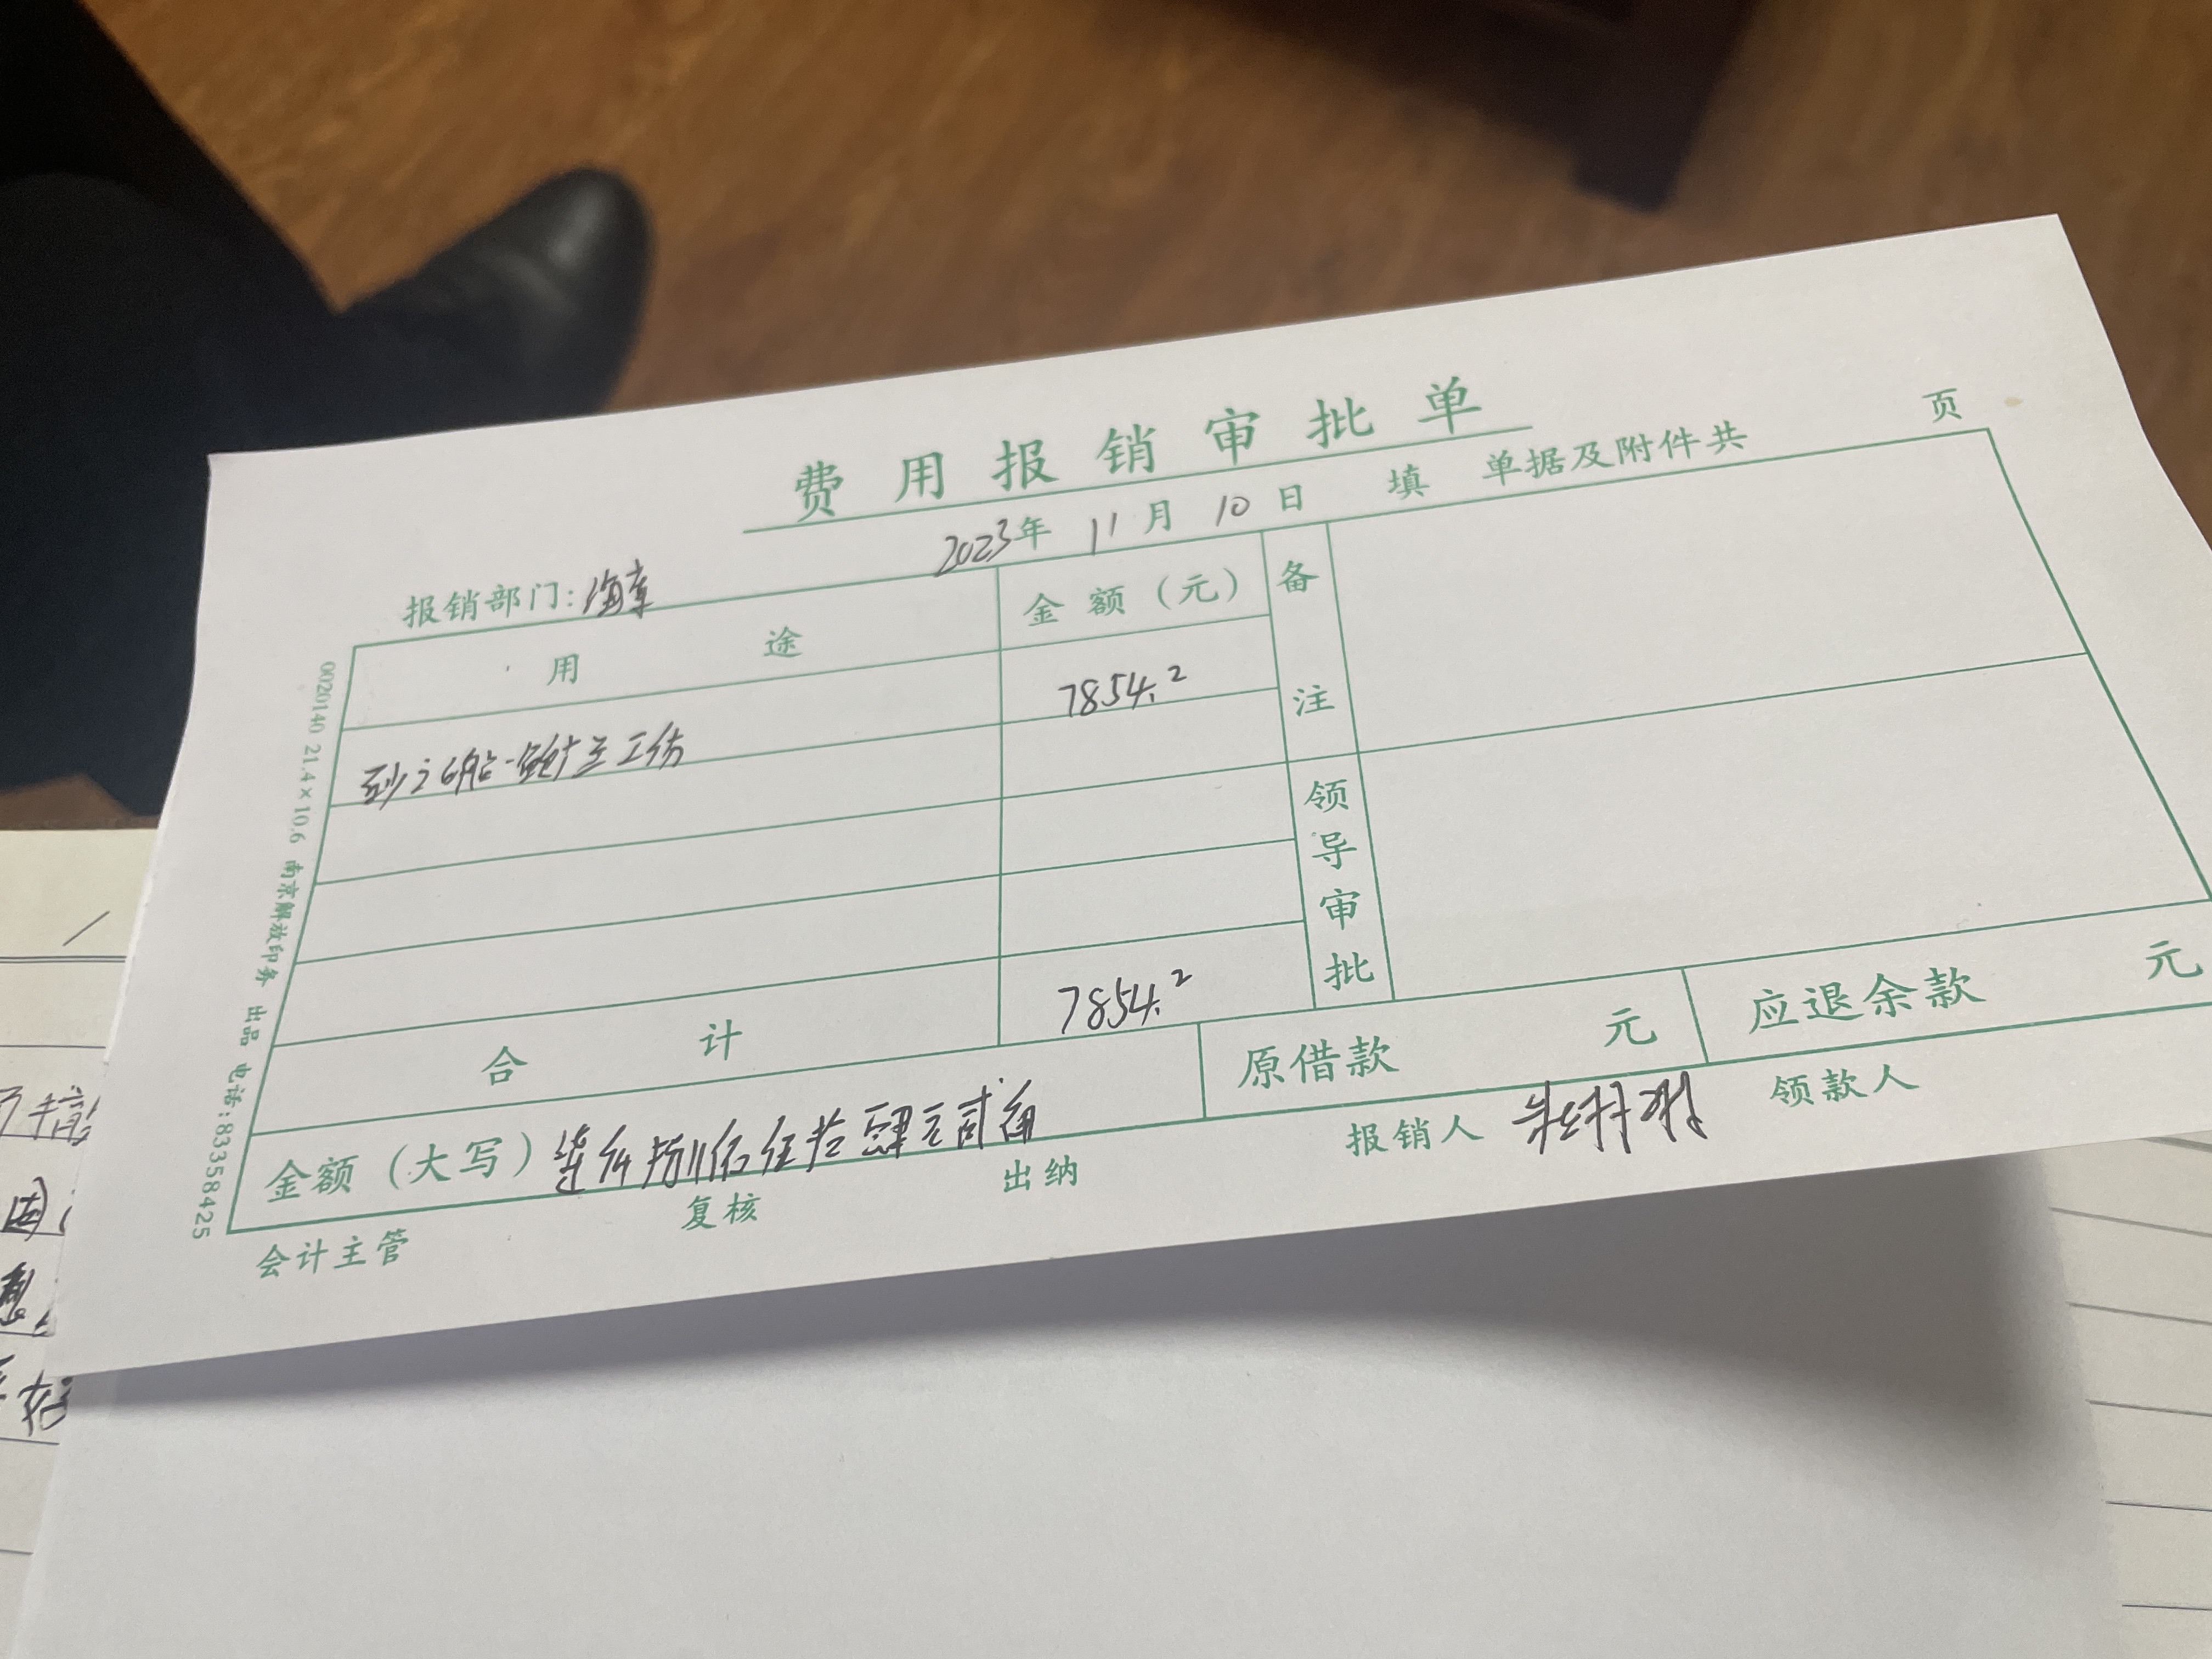 费用报销审批单
2023年 11月 10日 填 单据及附件共 页
报销部门:
用途 金额(元) 备注
工伤 7854.2
领导审批
合计 7854.2
金额(大写) 柒仟捌佰伍拾肆元贰角 原借款 元 应退余款 元
会计主管 复核 出纳 报销人 领款人
0020140 21.4×10.6 南京解放印务 出品 电话:83358425